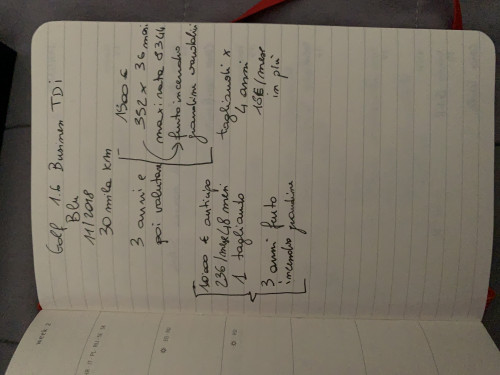 Golf 1.6 Business TDi
Blu
11/2018
30 mila km
3 anni e
poi valutare
352 x 36 mesi
maxi rata 8344
furto incendio
grandine vandali
10000 € anticipo
236/mese 48 mesi
1 tagliando
3 anni furto
incendio grandine
tagliandi x
4 anni
18€/mese
in più